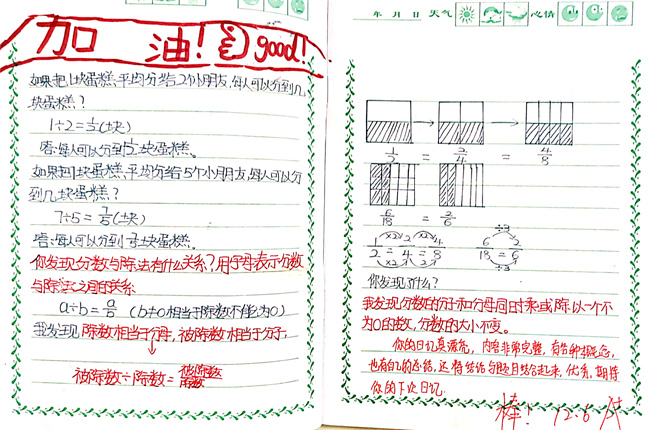 加油! good!
如果把1块蛋糕,平均分给2个小朋友,每人可以分到几
块蛋糕?
1÷2=1/2(块)
答:每人可以分到1/2块蛋糕。
如果把7块蛋糕,平均分给5个小朋友,每人可以分
到几块蛋糕?
7÷5=7/5(块)
答:每人可以分到7/5块蛋糕。
你发现分数与除法有什么关系?用字母表示分数
与除法之间的关系
a÷b=a/b (b≠0相当于除数不能为0)
我发现 除数相当于分母,被除数相当于分子,
被除数÷除数=被除数/除数
年 月 日 天气 心情
1/2 = 2/4 = 4/8
6/18 = 2/6
×2 ×2 ÷3
1/2 = 2/4 = 4/8 6/18 = 2/6
×2 ×2 ÷3
你发现了什么?
我发现分数的分子和分母同时乘或除以一个不
为0的数,分数的大小不变。
你的日记真漂亮,内容非常完整,有各种概念,
也有自己的总结,还将结论与题目结合起来,优秀,期待
你的下次日记.
棒! 12.6